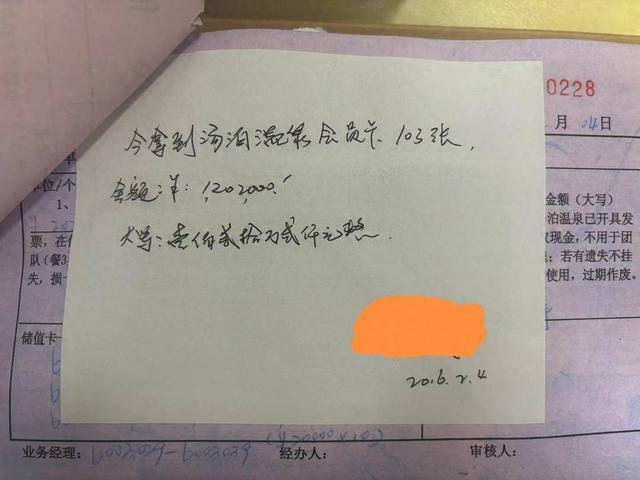 0228
月 04日
今拿到汤泊温泉会员卡 103张,
金额:¥: 1,202,000.
大写:壹佰贰拾万贰仟元整.
2016.2.4
单位/个
金额(大写)
1、
泊温泉已开具发
票,在
现金,不用于团
队(餐
;若有遗失不挂
失,损
使用,过期作废。
储值卡
业务经理:
经办人:
审核人: